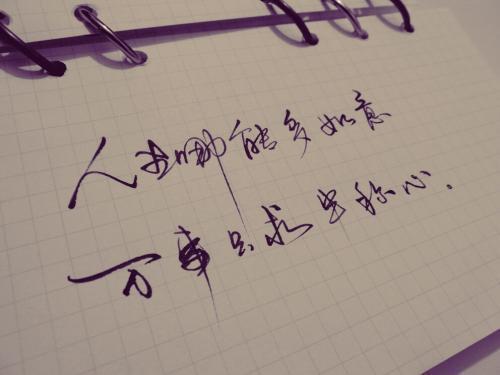 人生哪能多如意
万事只求半称心.